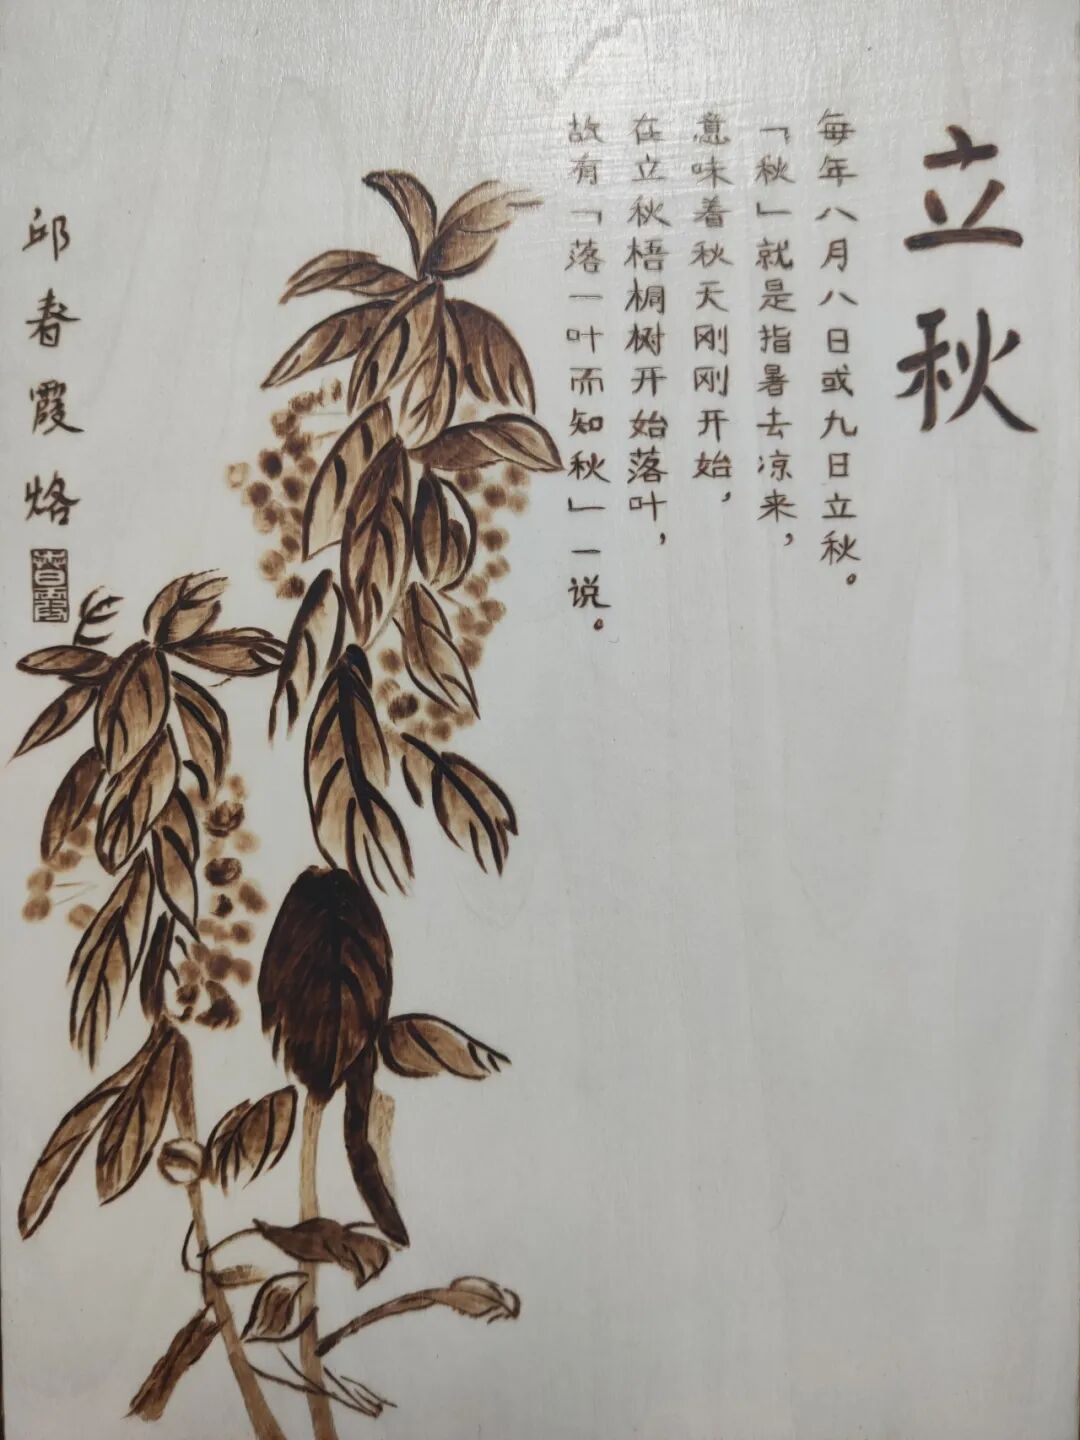 立秋
每年八月八日或九日立秋。
「秋」就是指暑去凉来，
意味着秋天刚刚开始，
在立秋梧桐树开始落叶，
故有「落一叶而知秋」一说。
邱春霞烙
春霞